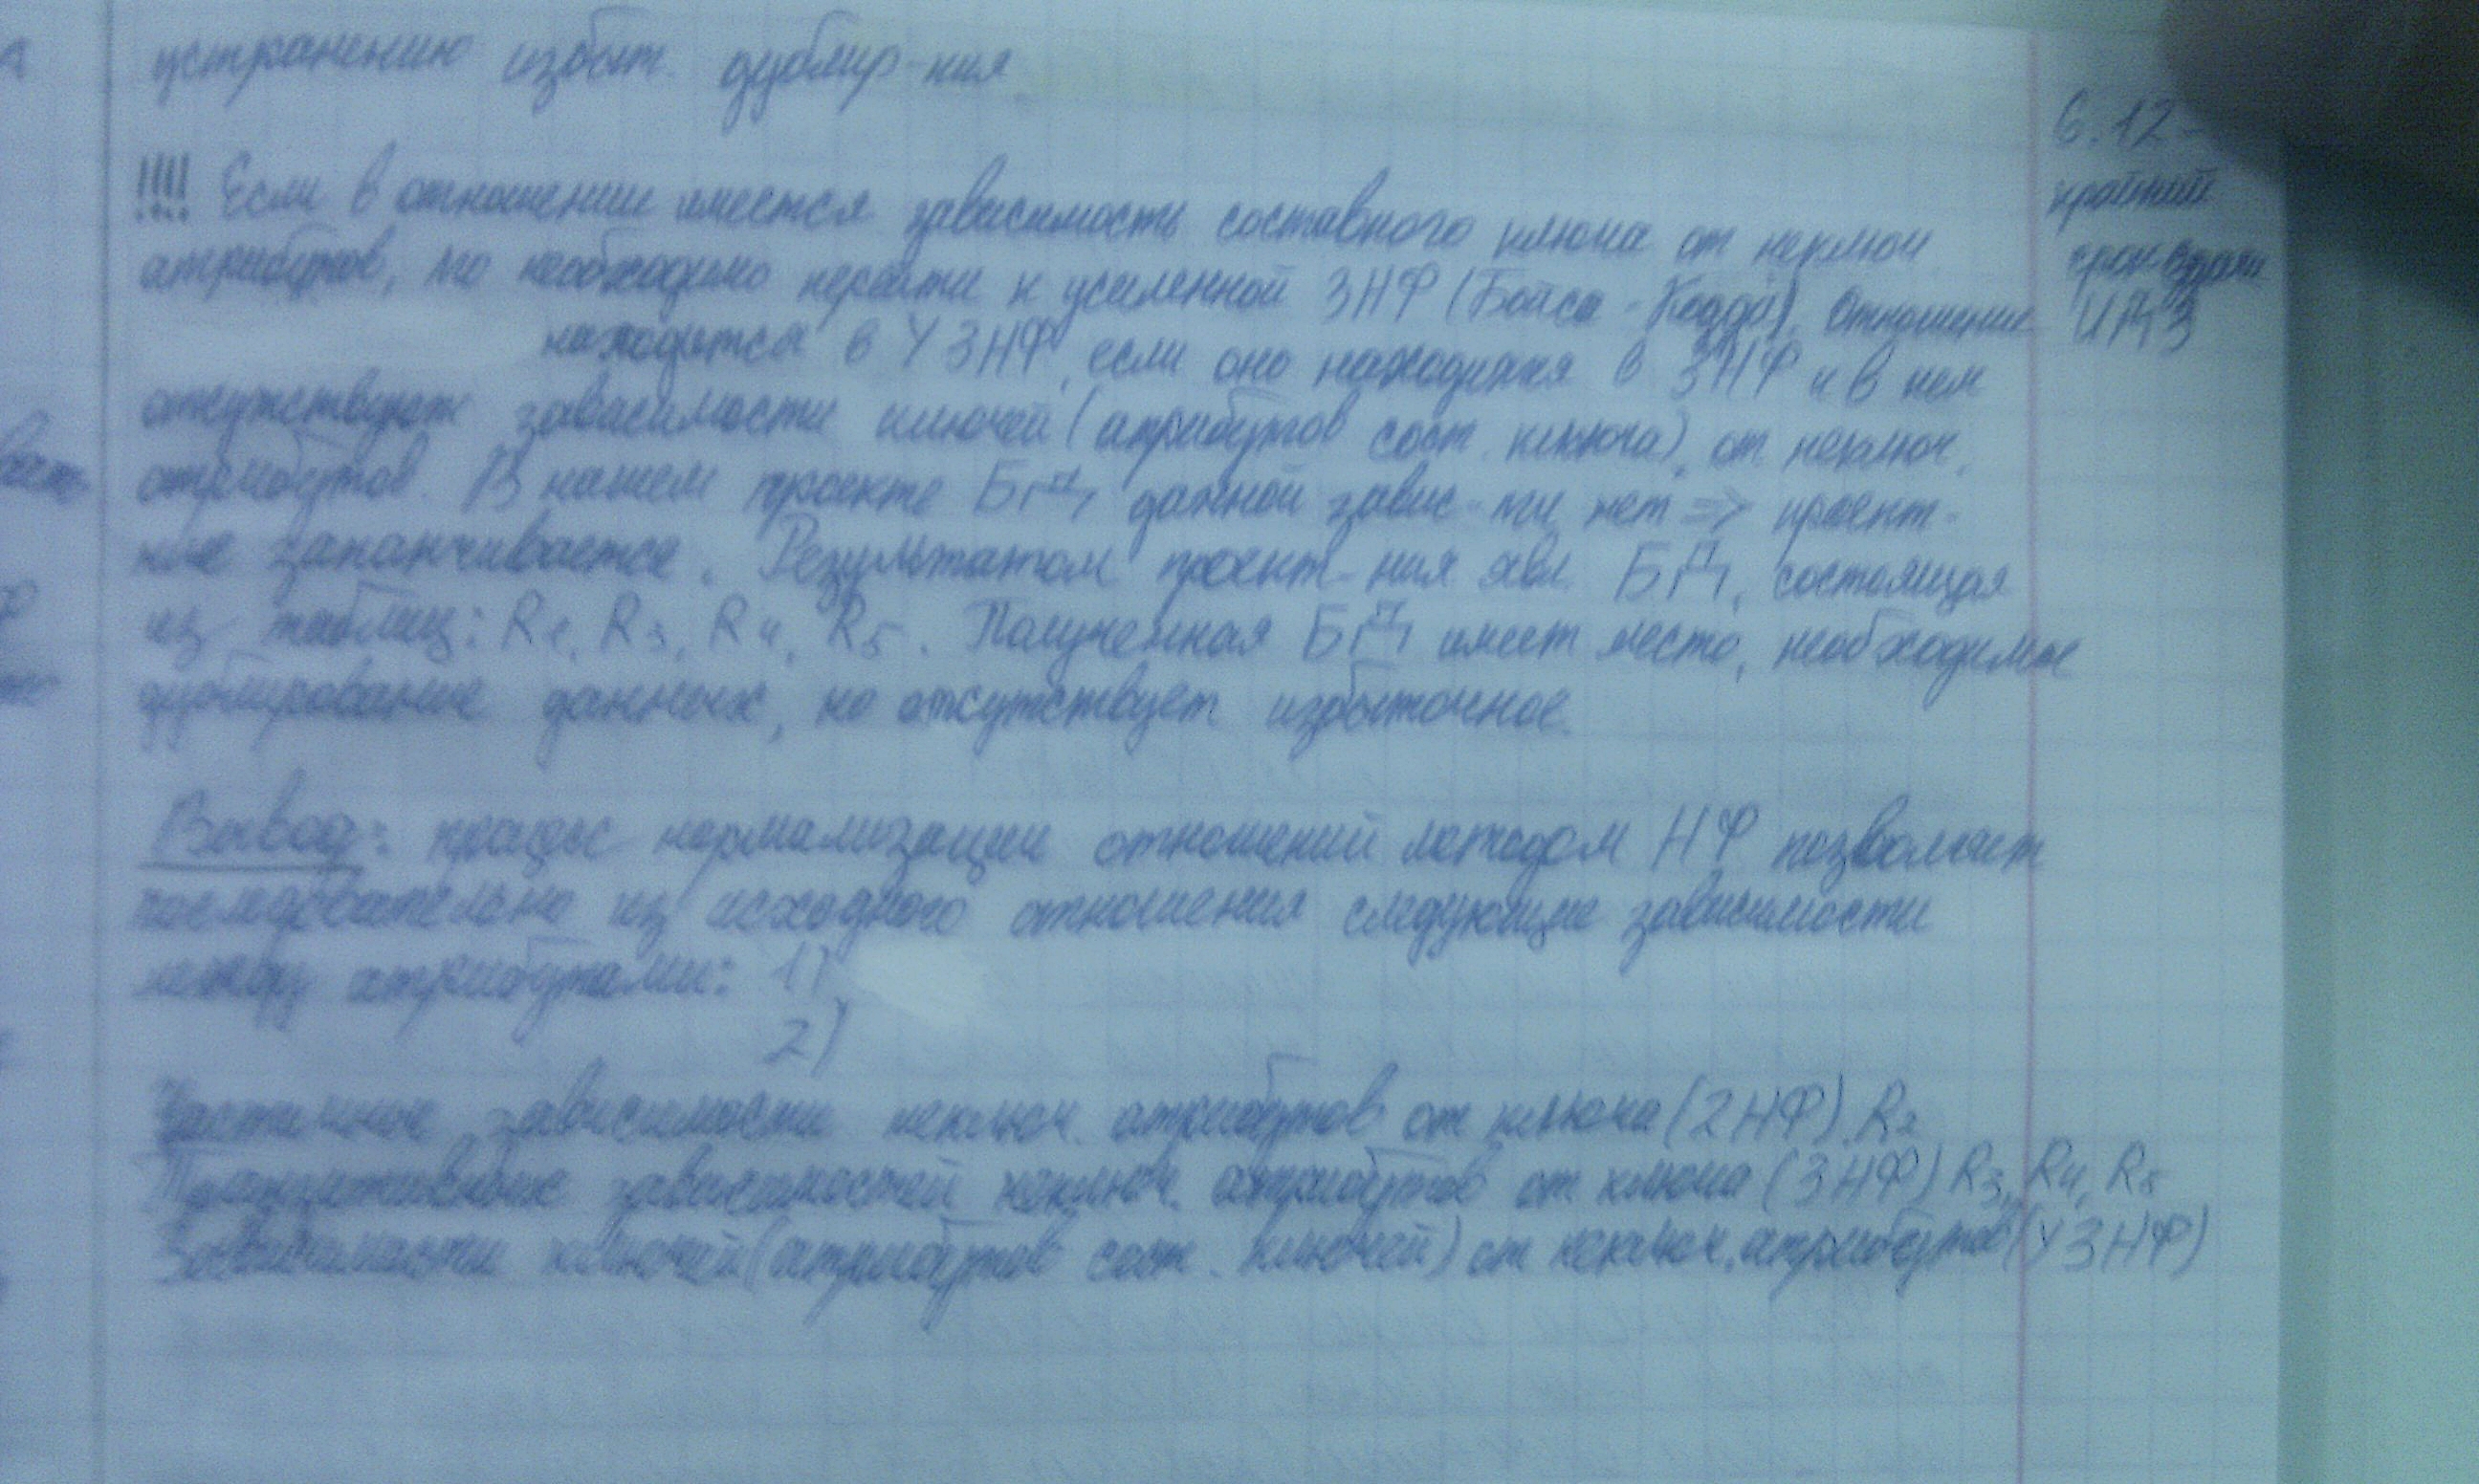 устранению избыт. дублир-ния
!!!! Если в отношении имеется зависимость составного ключа от неключ.
атрибутов, то необходимо перейти к усиленной 3НФ (Бойса - Кодда). Отношение
находится в У3НФ, если оно находится в 3НФ и в нем
отсутствуют зависимости ключей (атрибутов сост. ключа) от неключ.
атрибутов. В нашем проекте БД данной завис-ти нет => проект-
ние заканчивается. Результатом проект-ния явл. БД, состоящая
из таблиц: R2, R3, R4, R5. Полученная БД имеет место, необходимое
дублирование данных, но отсутствует избыточное.
Вывод: процесс нормализации отношений методом НФ позволяет
последовательно из исходного отношения следующие зависимости
между атрибутами: 1)
2)
Частичное зависимости неключ. атрибутов от ключа (2НФ) R2
Транзитивные зависимостей неключ. атрибутов от ключа (3НФ) R3, R4, R5
Зависимости ключей (атрибутов сост. ключей) от неключ. атрибутов (У3НФ)
6.12-
крайний
срок сдачи
ИДЗ